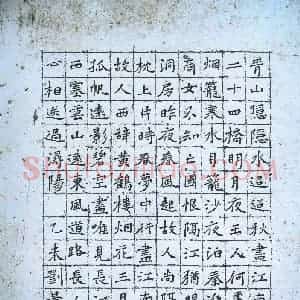 青山隱隱水迢迢秋盡江
二十四橋明月夜玉人何
烟籠寒水月籠沙夜泊秦
商女不知亡國恨隔江猶
洞房昨夜春風起故人尚
枕上片時春夢中行盡江
故人西辭黃鶴樓烟花三
孤帆遠影碧空盡唯見長
西雲山遠東風道路長
心相送過潯陽 乙未劉